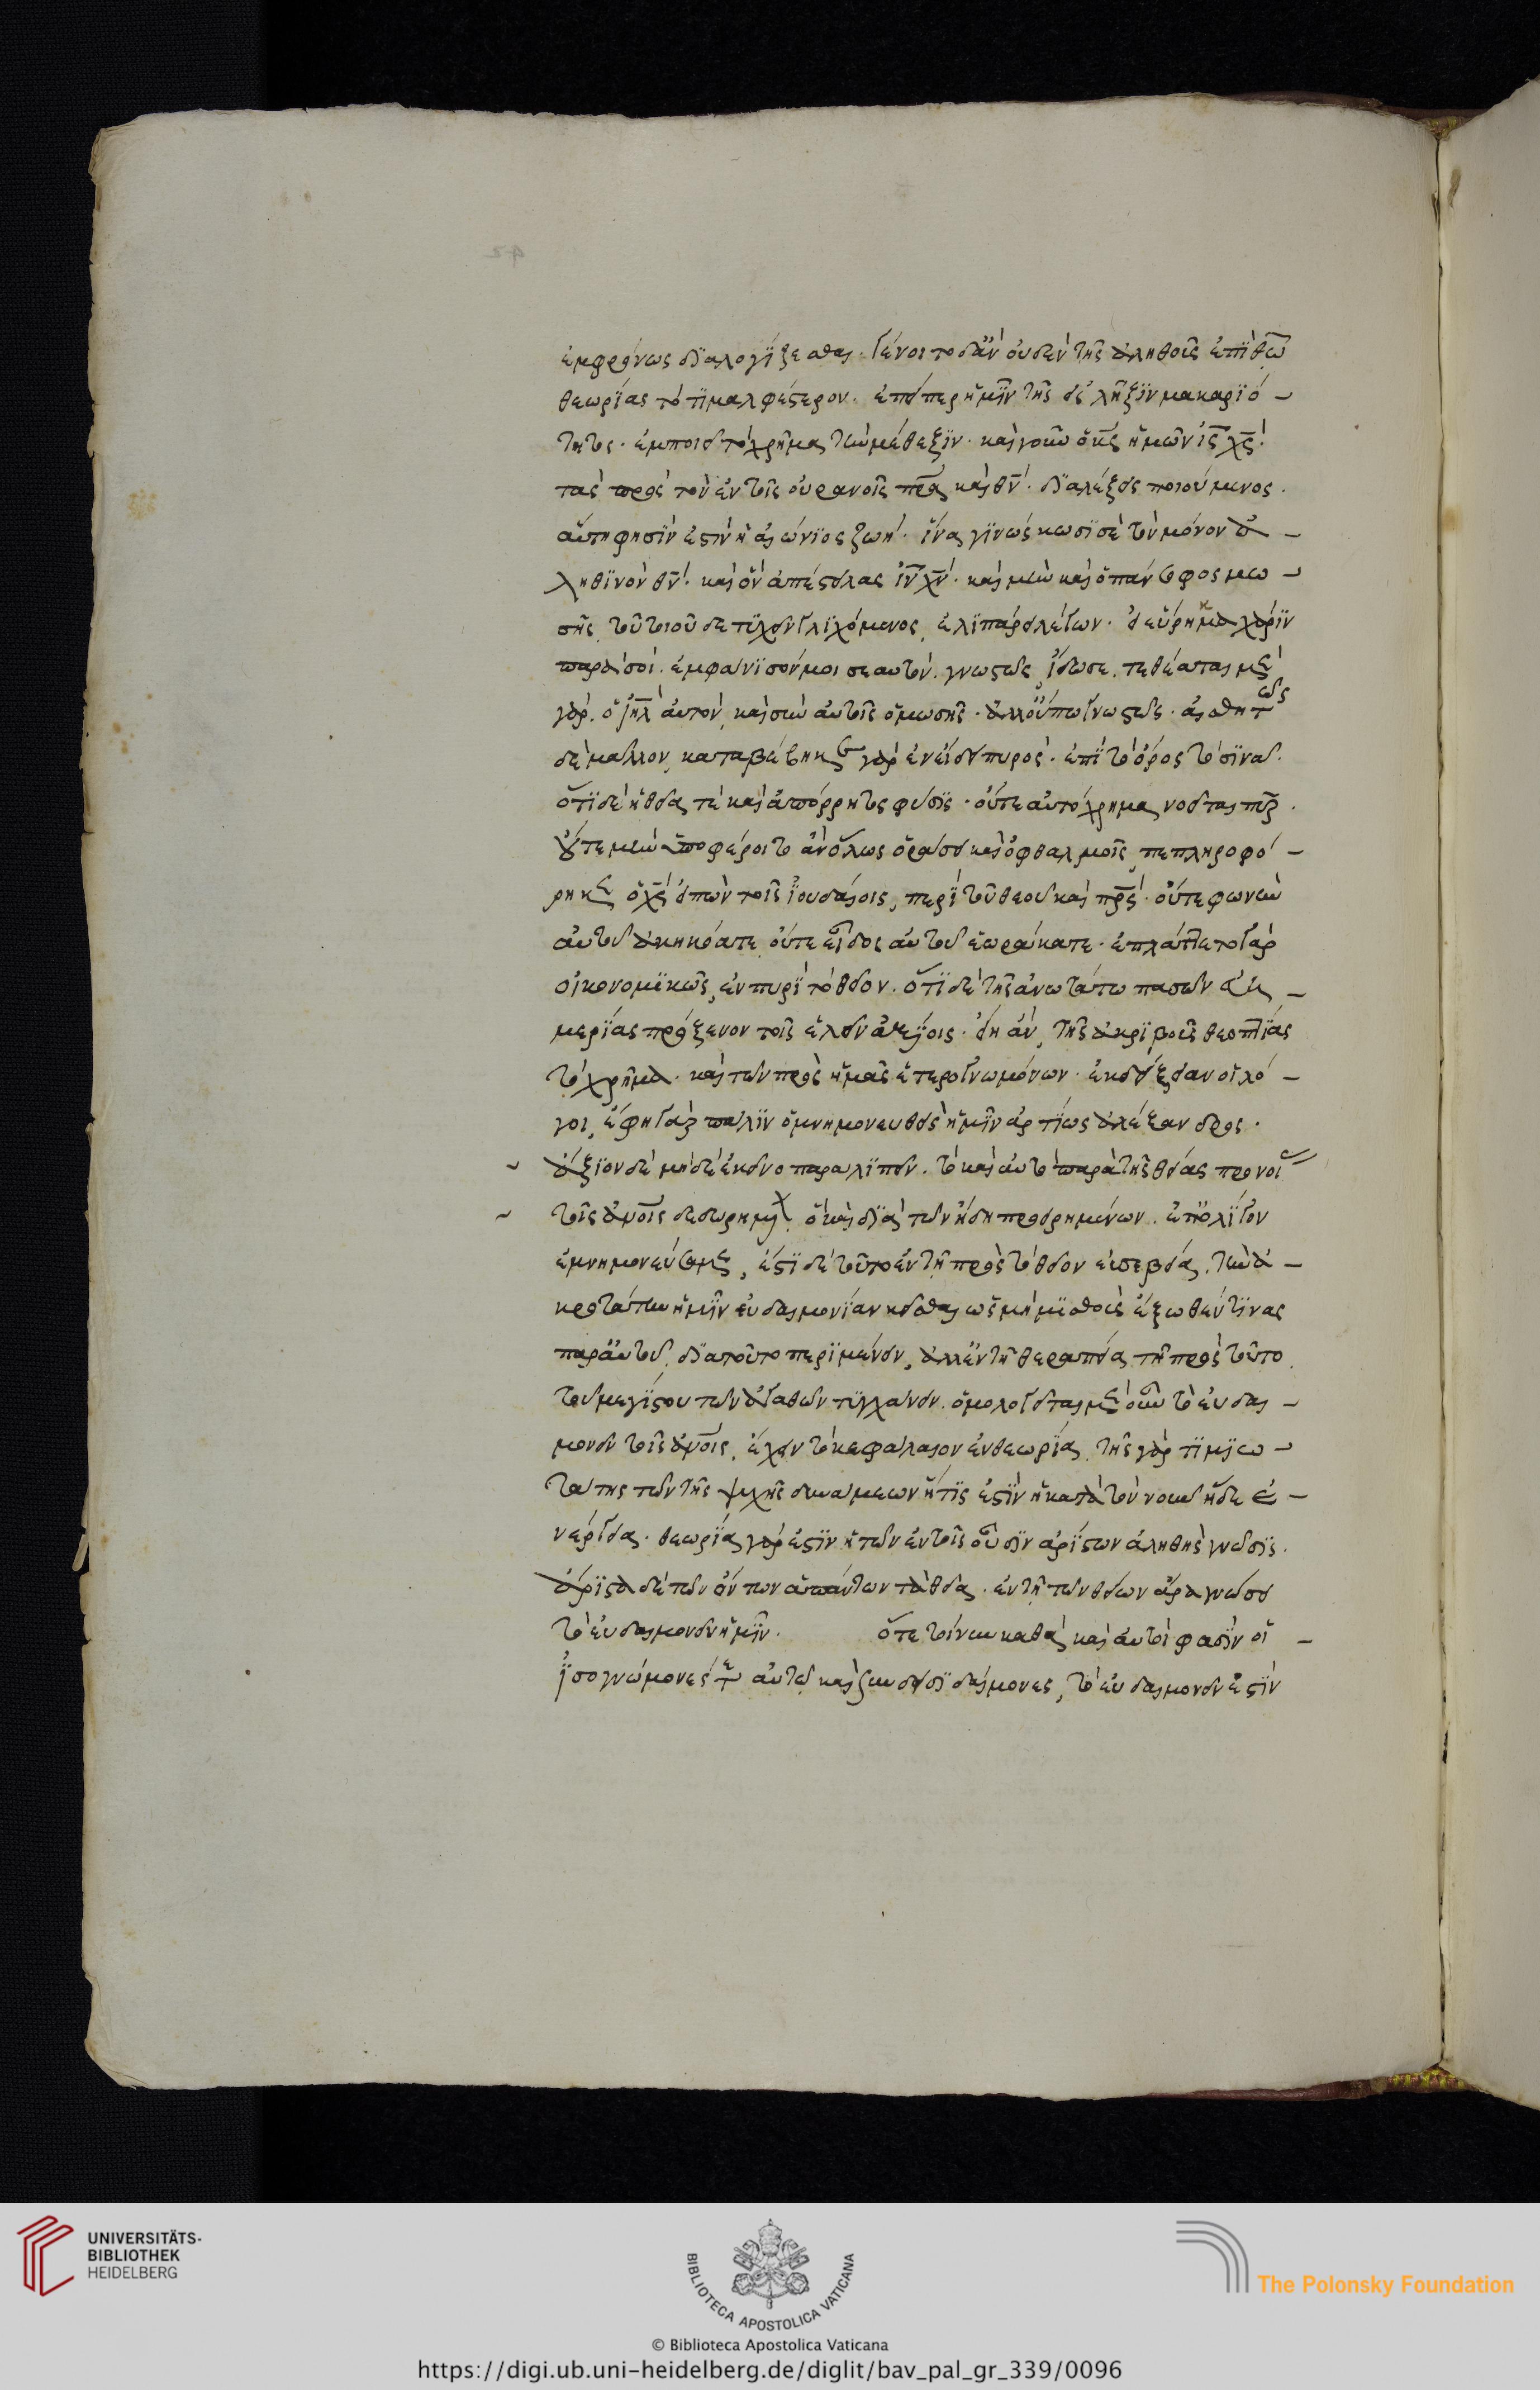 ἐμφρόνως διαλογίζεσθαι. γένοιτο δ' ἂν οὐδὲν τῆς ἀληθοῦς ἐπὶ θῶ
θεωρίας τὸ τιμαλφέστερον. ἐπείπερ ἡμῖν τῆς εἰς λῆξιν μακαριό-
τητος. ἐμποιεῖ τὸ χρῆμα τὴν μέθεξιν. καὶ γοῦν ὁ κς ἡμῶν ις χς.
τὰς πρὸς τὸν ἐν τοῖς οὐρανοῖς πρα καὶ θν. διαλέξεις ποιούμενος.
αὕτη φησὶν ἐστὶν ἡ αἰώνιος ζωή. ἵνα γινώσκωσί σε τὸν μόνον ἀ-
ληθινὸν θν. καὶ ὃν ἀπέστειλας ιν χν. καὶ μὴν καὶ ὁ πάνσοφος μω-
σῆς, τοῦ τοιοῦδε τυχεῖν γλιχόμενος, ἐλιπάρει λέγων. εἰ εὕρηκα χάριν
παρὰ σοί. ἐμφάνισόν μοι σεαυτόν. γνωστῶς ἴδω σε. τεθέαται μὲν
γάρ. ὁ ιηλ αὐτὸν, καὶ σὺν αὐτοῖς ὁ μωσῆς. ἀλλ' οὔπω γνωστῶς. αἰσθητῶς
δὲ μᾶλλον, καταβέβηκε γὰρ ἐν εἴδει πυρός. ἐπὶ τὸ ὄρος τὸ σινᾶ.
ὅτι δὲ ἡ θεία τε καὶ ἀπόρρητος φύσις. οὔτε αὐτόχρημα νοεῖται πῦρ.
οὔτε μὴν ὑποφέροιτο ἂν ὅλως ὁράσει καὶ ὀφθαλμοῖς, πεπληροφό-
ρηκεν ὁ χς εἰπὼν τοῖς ἰουδαίοις, περὶ τοῦ θεοῦ καὶ πρς. οὔτε φωνὴν
αὐτοῦ ἀκηκόατε οὔτε εἶδος αὐτοῦ ἑωράκατε. ἐπλάττετο γὰρ
οἰκονομικῶς, ἐν πυρὶ τὸ θεῖον. ὅτι δὲ τῆς ἀνωτάτω πασῶν εὐη-
μερίας πρόξενον τοῖς ἑλεῖν ἀξίοις. εἴη ἂν, τῆς ἀκριβοῦς θεοπτίας
τὸ χρῆμα. καὶ τῶν πρὸς ἡμᾶς ἑτερογνωμόνων. ἐκδείξειαν οἱ λό-
γοι, ἔφη γὰρ πάλιν ὁ μνημονευθεὶς ἡμῖν ἀρτίως ἀλέξανδρος.
ἄξιον δὲ μηδὲ ἐκεῖνο παραλιπεῖν. τὸ καὶ αὐτὸ παρὰ τῆς θείας προνοί
τοῖς ἀνοις δεδωρημέ ὃ καὶ διὰ τῶν ἤδη προειρημένων. ἐπ' ὀλίγον
ἐμνημονεύσαμεν, ἔστι δὲ τοῦτο ἐν τῇ πρὸς τὸ θεῖον εὐσεβείᾳ. τὴν ἀ-
κροτάτην ἡμῖν εὐδαιμονίαν κεῖσθαι ὡς μὴ μισθοὺς ἔξωθέν τινας
παρ' αὐτοῦ, διὰ τοῦτο περιμένειν, ἀλλ' ἐν τῇ θεραπείᾳ τῇ πρὸς τοῦτο
τοῦ μεγίστου τῶν ἀγαθῶν τυγχάνειν. ὁμολογεῖται μὲν οὖν τὸ εὐδαι-
μονεῖν τοῖς ἀνοις, ἔχειν τὸ κεφάλαιον ἐν θεωρίᾳ. τῆς γὰρ τιμιω-
τάτης τῶν τῆς ψυχῆς δυνάμεων ἥτις ἐστὶν ἡ κατὰ τὸν νοῦν ἥδε ἐ-
νέργεια. θεωρία γάρ ἐστιν ἡ τῶν ἐν τοῖς οὖσιν ἀρίστων ἀληθὴς γνῶσις.
ἄριστα δὲ τῶν ὄντων ἁπάντων τὰ θεῖα. ἐν τῇ τῶν θείων ἄρα γνώσει
τὸ εὐδαιμονεῖν ἡμῖν. ὅτε τοίνυν καθὰ καὶ αὐτοί φασιν οἱ
ἰσογνώμονές τε αὐτῶ καὶ ξυνδεισιδαίμονες, τὸ εὐδαιμονεῖν ἐστὶν
UNIVERSITÄTS-
BIBLIOTHEK
HEIDELBERG
BIBLIOTECA APOSTOLICA VATICANA
The Polonsky Foundation
© Biblioteca Apostolica Vaticana
https://digi.ub.uni-heidelberg.de/diglit/bav_pal_gr_339/0096